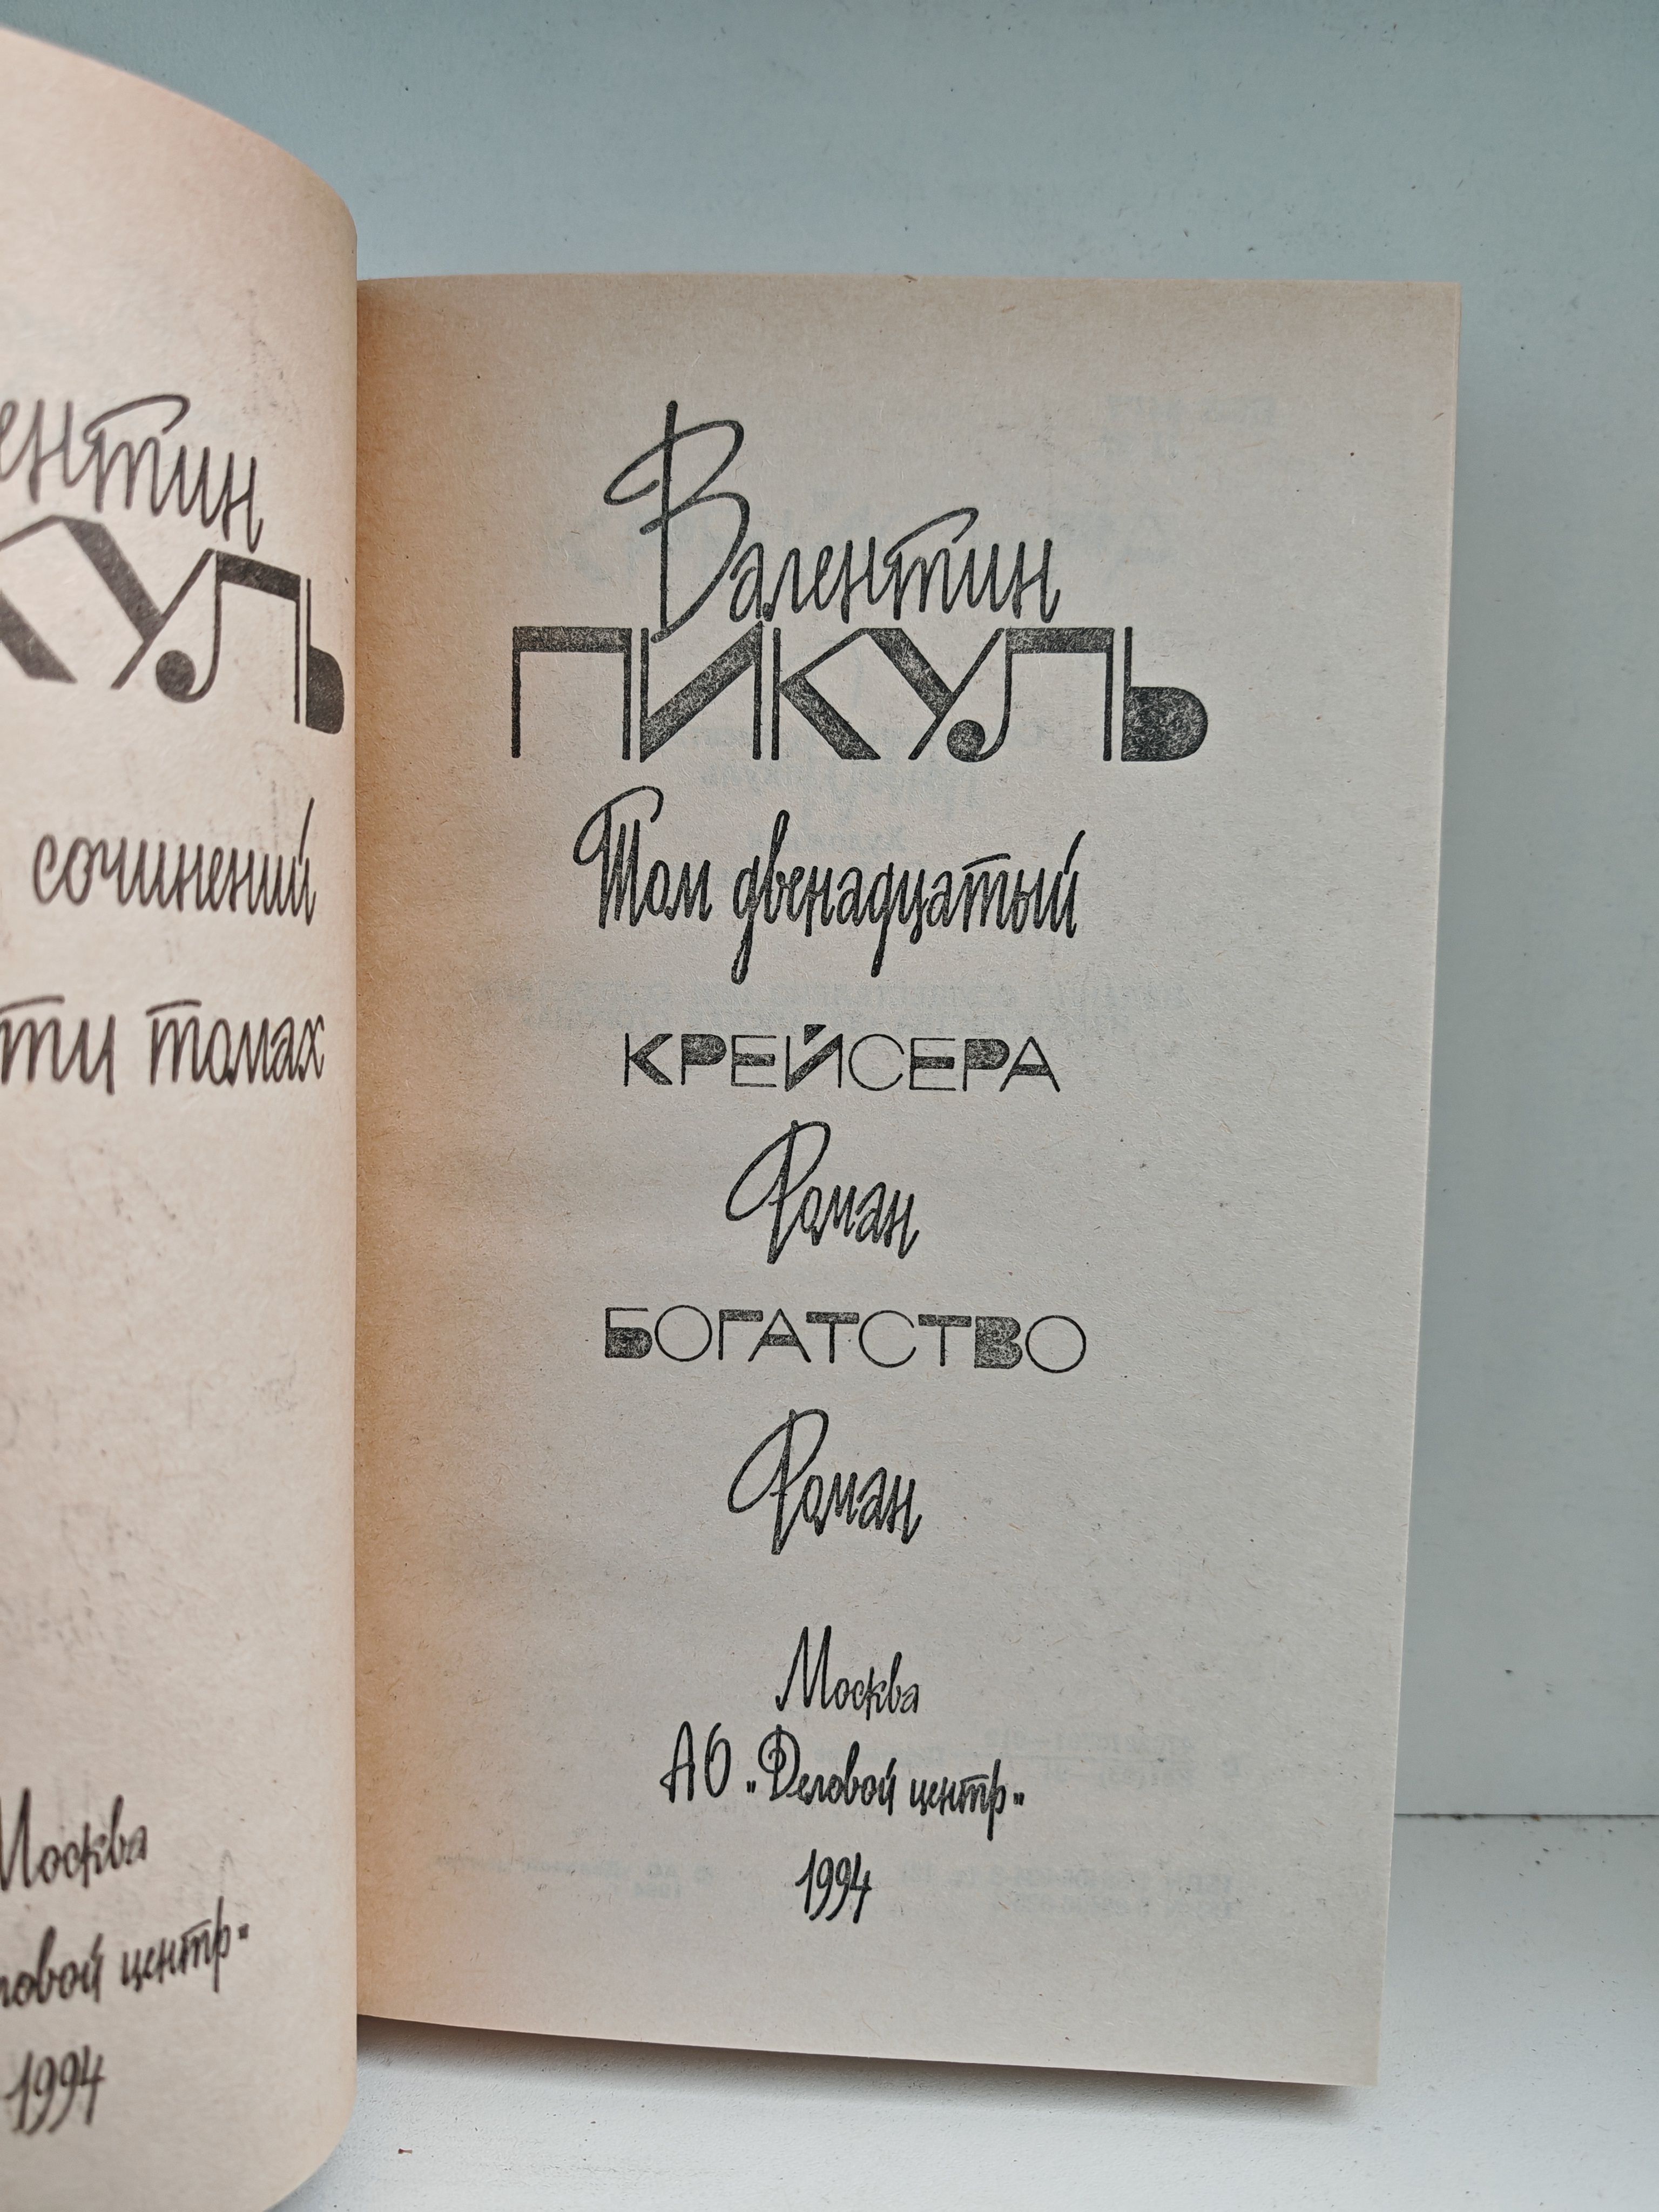 сочинений
томах
Москва
центр"
1994
Валентин
ПИКУЛЬ
Том двенадцатый
КРЕЙСЕРА
Роман
БОГАТСТВО
Роман
Москва
АО „Деловой центр"
1994